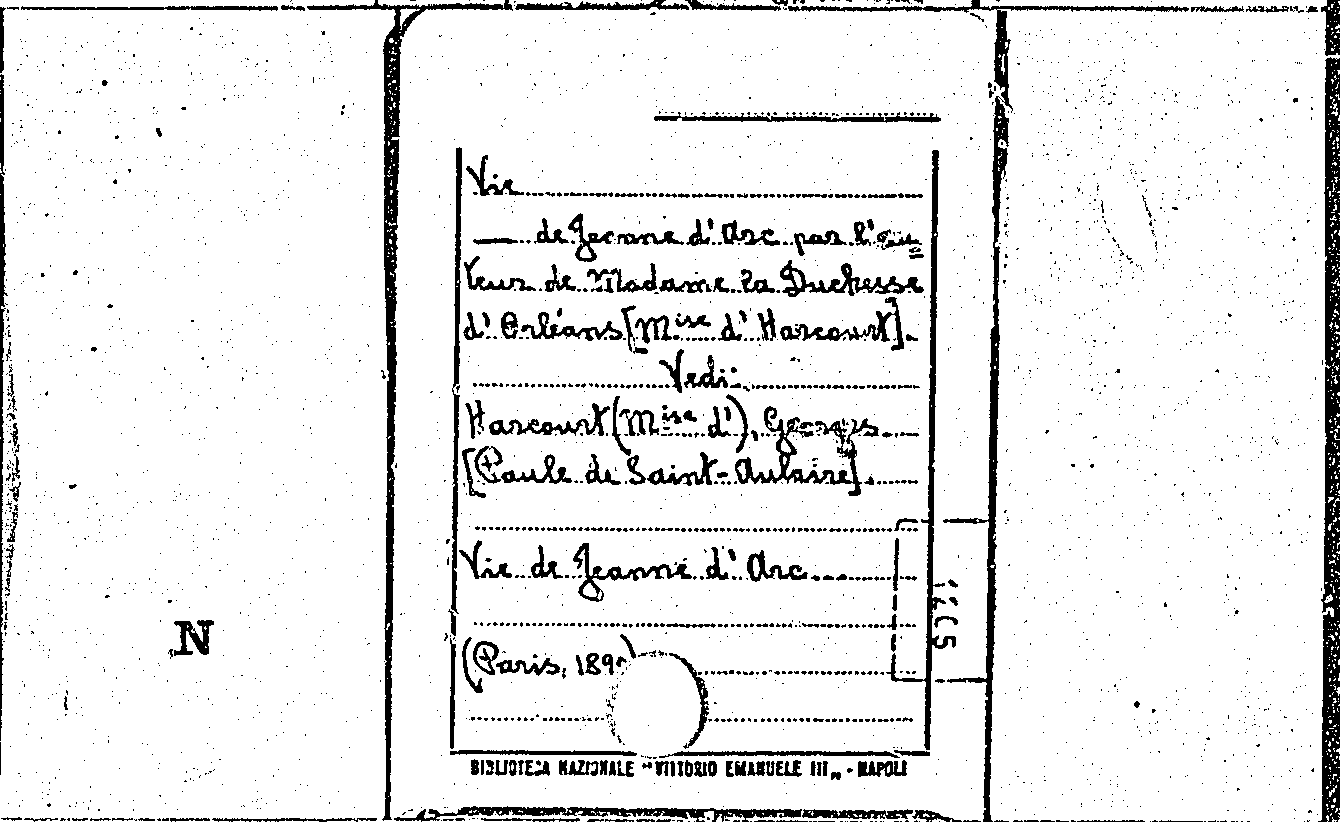 Vie
— de Jeanne d'Arc par l'au=
teur de Madame la Duchesse
d'Orléans [Mise d'Harcourt].
Vedi:
Harcourt (Mise d'), Georges
[Paule de Saint-Aulaire].
Vie de Jeanne d'Arc...
(Paris, 189 )
BIBLIOTECA NAZIONALE "VITTORIO EMANUELE III„ - NAPOLI
N